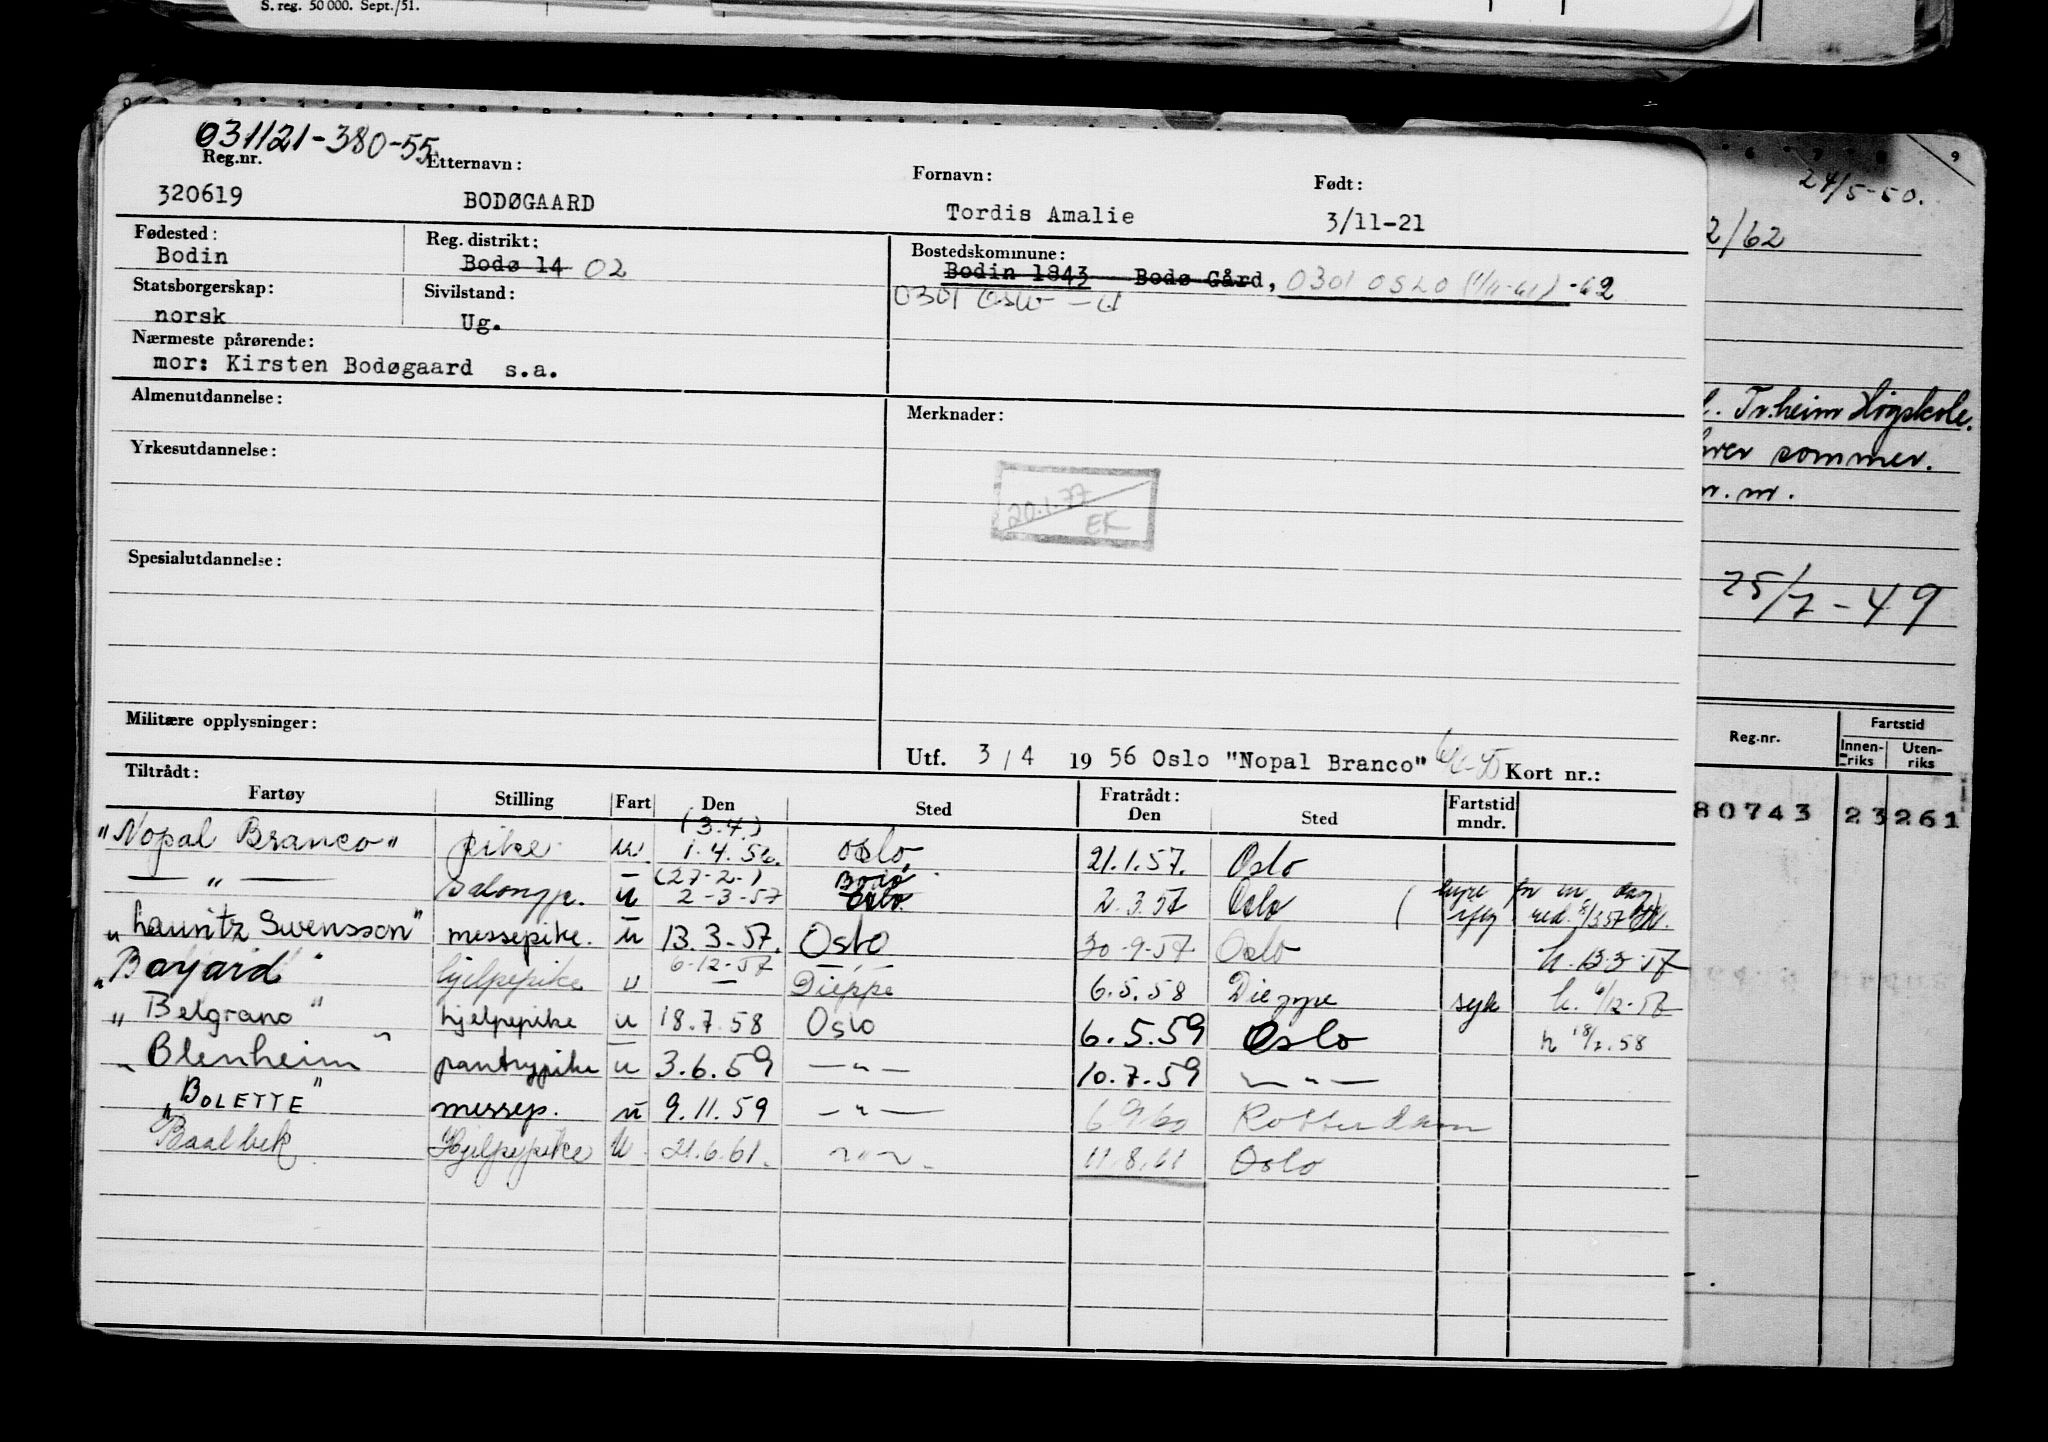 S. reg. 50 000. Sept./51.
9
24/5-50.
2/62
Tr.heim Högskole.
hver sommer.
m.m.
25/7-49
Reg.nr. Fartstid
Innen-riks Uten-riks
80743 23 261
031121-380-55
Reg.nr. Etternavn: Fornavn: Født:
320619 BODØGAARD Tordis Amalie 3/11-21
Fødested: Reg. distrikt: Bostedskommune:
Bodin Bodø 14 02 Bodin 1843 Bodø Gård, 0301 OSLO -62
Statsborgerskap: Sivilstand: 0301 Oslo
norsk Ug.
Nærmeste pårørende:
mor: Kirsten Bodøgaard s.a.
Almenutdannelse: Merknader:
Yrkesutdannelse:
20.1.77
EK
Spesialutdannelse:
Militære opplysninger:
Utf. 3/4 1956 Oslo "Nopal Branco" Kort nr.:
Tiltrådt: Fratrådt:
Fartøy Stilling Fart Den Sted Den Sted Fartstid mndr.
(3.4.)
"Nopal Branco" pike u 1.4.56. Oslo 21.1.57. Oslo
(27-2-) Bodø
— " — Salongp. u 2-3-57 Oslo 2.3.57 Oslo
"Lauritz Swensson" messepike. u 13.3-57. Oslo 30-9-57 Oslo h. 13-3-57
"Bayard" hjelpepike u 6-12-57 Dieppe 6.5.58 Dieppe syk h. 6/12-57
"Belgrano" hjelpepike u 18.7.58 Oslo 6.5.59 Oslo h 18/7.58
"Blenheim" pantrypike u 3.6.59 — " — 10.7.59 — " —
"BOLETTE" messep. u 9.11.59 — " — 6/9 60 Rotterdam
Baalbek Hjelpepike U 21.6.61. — " — 11.8.61 Oslo